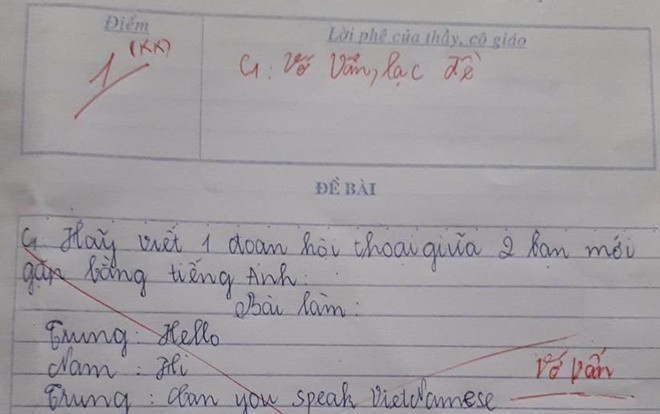 Điểm
Lời phê của thầy, cô giáo
1 (KK)
C1: Vớ Vẩn, lạc đề
ĐỀ BÀI
C1 Hãy viết 1 đoạn hội thoại giữa 2 bạn mới
gặp bằng tiếng Anh:
Bài làm:
Trung: Hello
Nam: Hi
Vớ Vẩn
Trung: Can you speak VietNamese